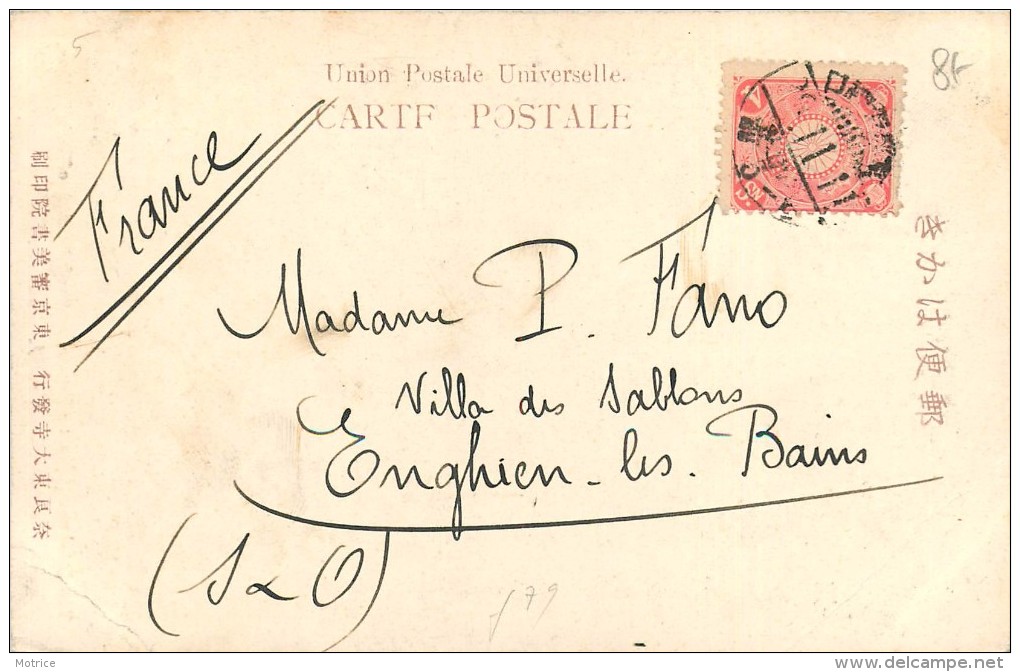 5
8f
Union Postale Universelle.
CARTE POSTALE
France
Madame P. Fano
Villa des Sablons
Enghien-les-Bains
(S & O)
f 79
きかは便郵
刷印院書美審京東 行發寺大東良奈
Motrice
delcampe.net